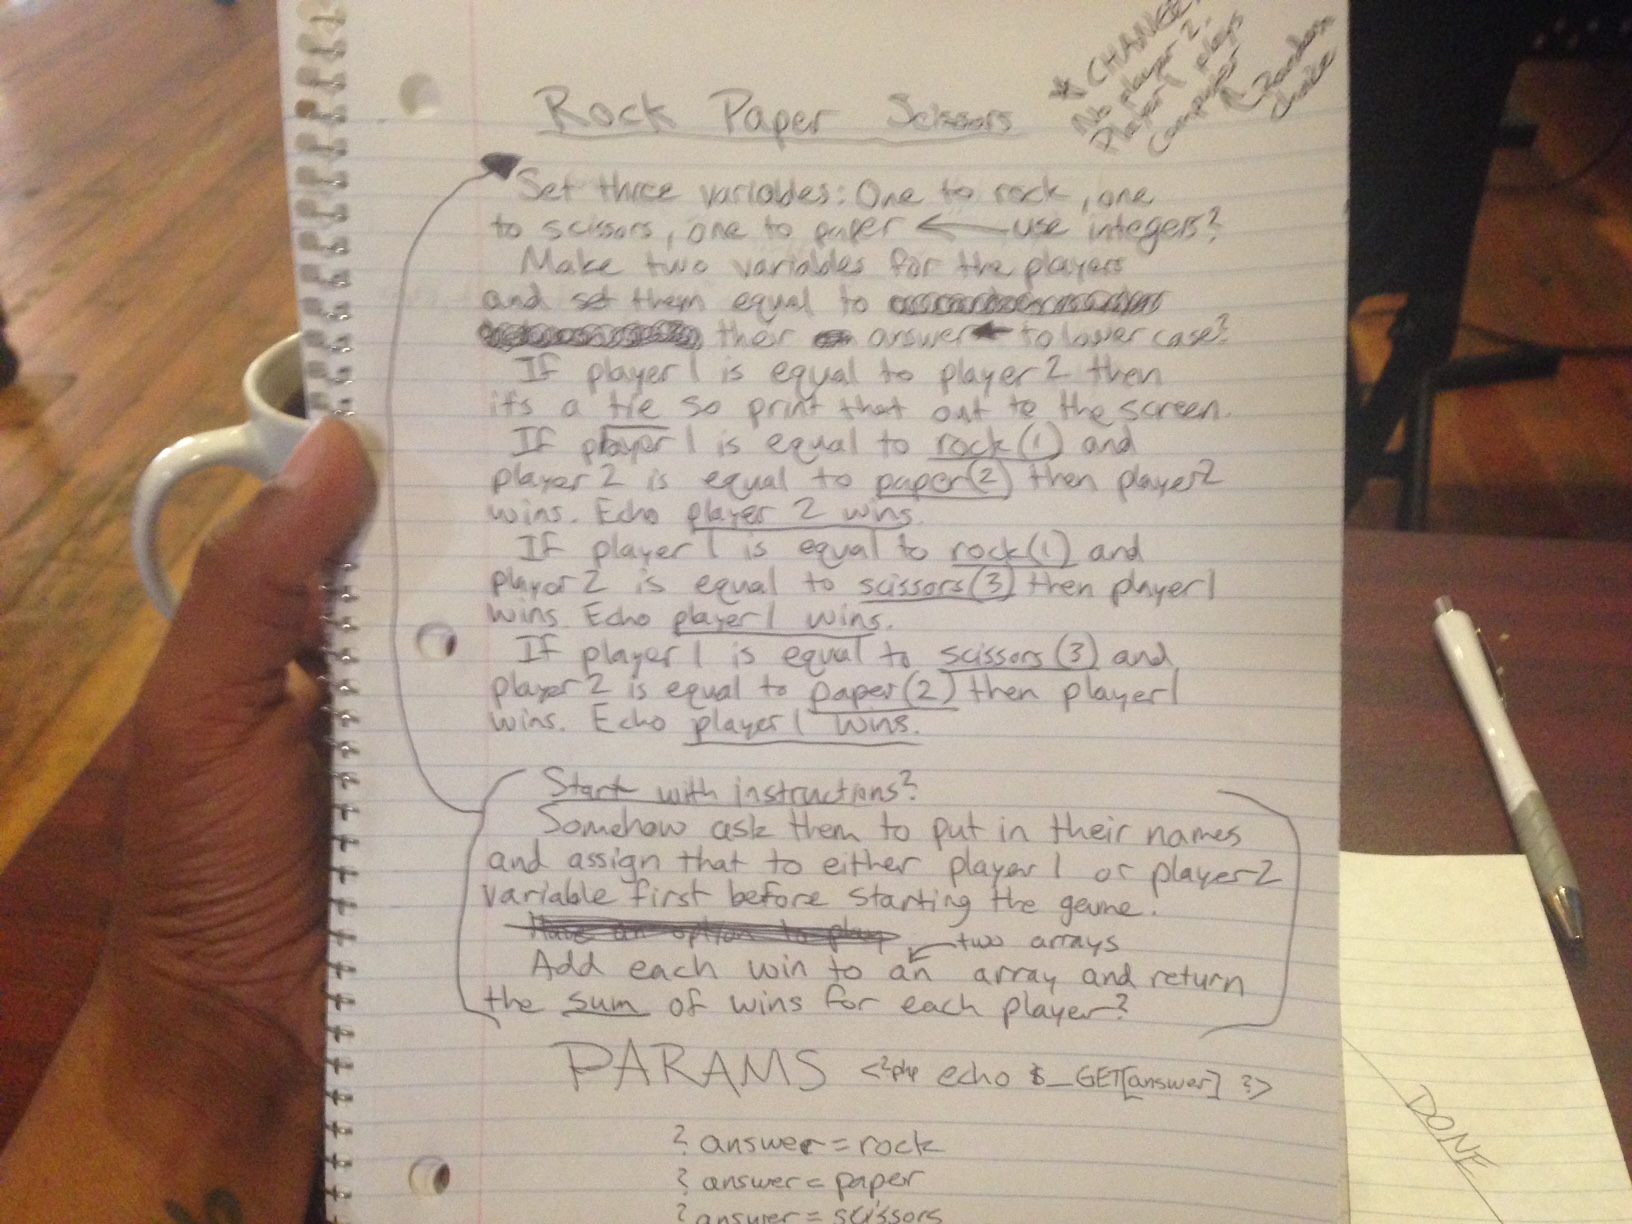 * CHANGE:
No player 2.
Player 1 plays
computer
Random
choice
Rock Paper Scissors
Set three variables: One to rock, one
to scissors, one to paper ← use integers?
Make two variables for the players
and set them equal to
their answer ← to lower case?
If player 1 is equal to player 2 then
its a tie so print that out to the screen.
If player 1 is equal to rock(1) and
player 2 is equal to paper(2) then player 2
wins. Echo player 2 wins.
If player 1 is equal to rock(1) and
player 2 is equal to scissors(3) then player 1
wins. Echo player 1 wins.
If player 1 is equal to scissors(3) and
player 2 is equal to paper(2) then player 1
wins. Echo player 1 wins.
Start with instructions?
Somehow ask them to put in their names
and assign that to either player 1 or player 2
variable first before starting the game.
Have an option to play
two arrays
Add each win to an array and return
the sum of wins for each player?
PARAMS <?php echo $_GET[answer] ?>
? answer = rock
? answer = paper
? answer = scissors
DONE